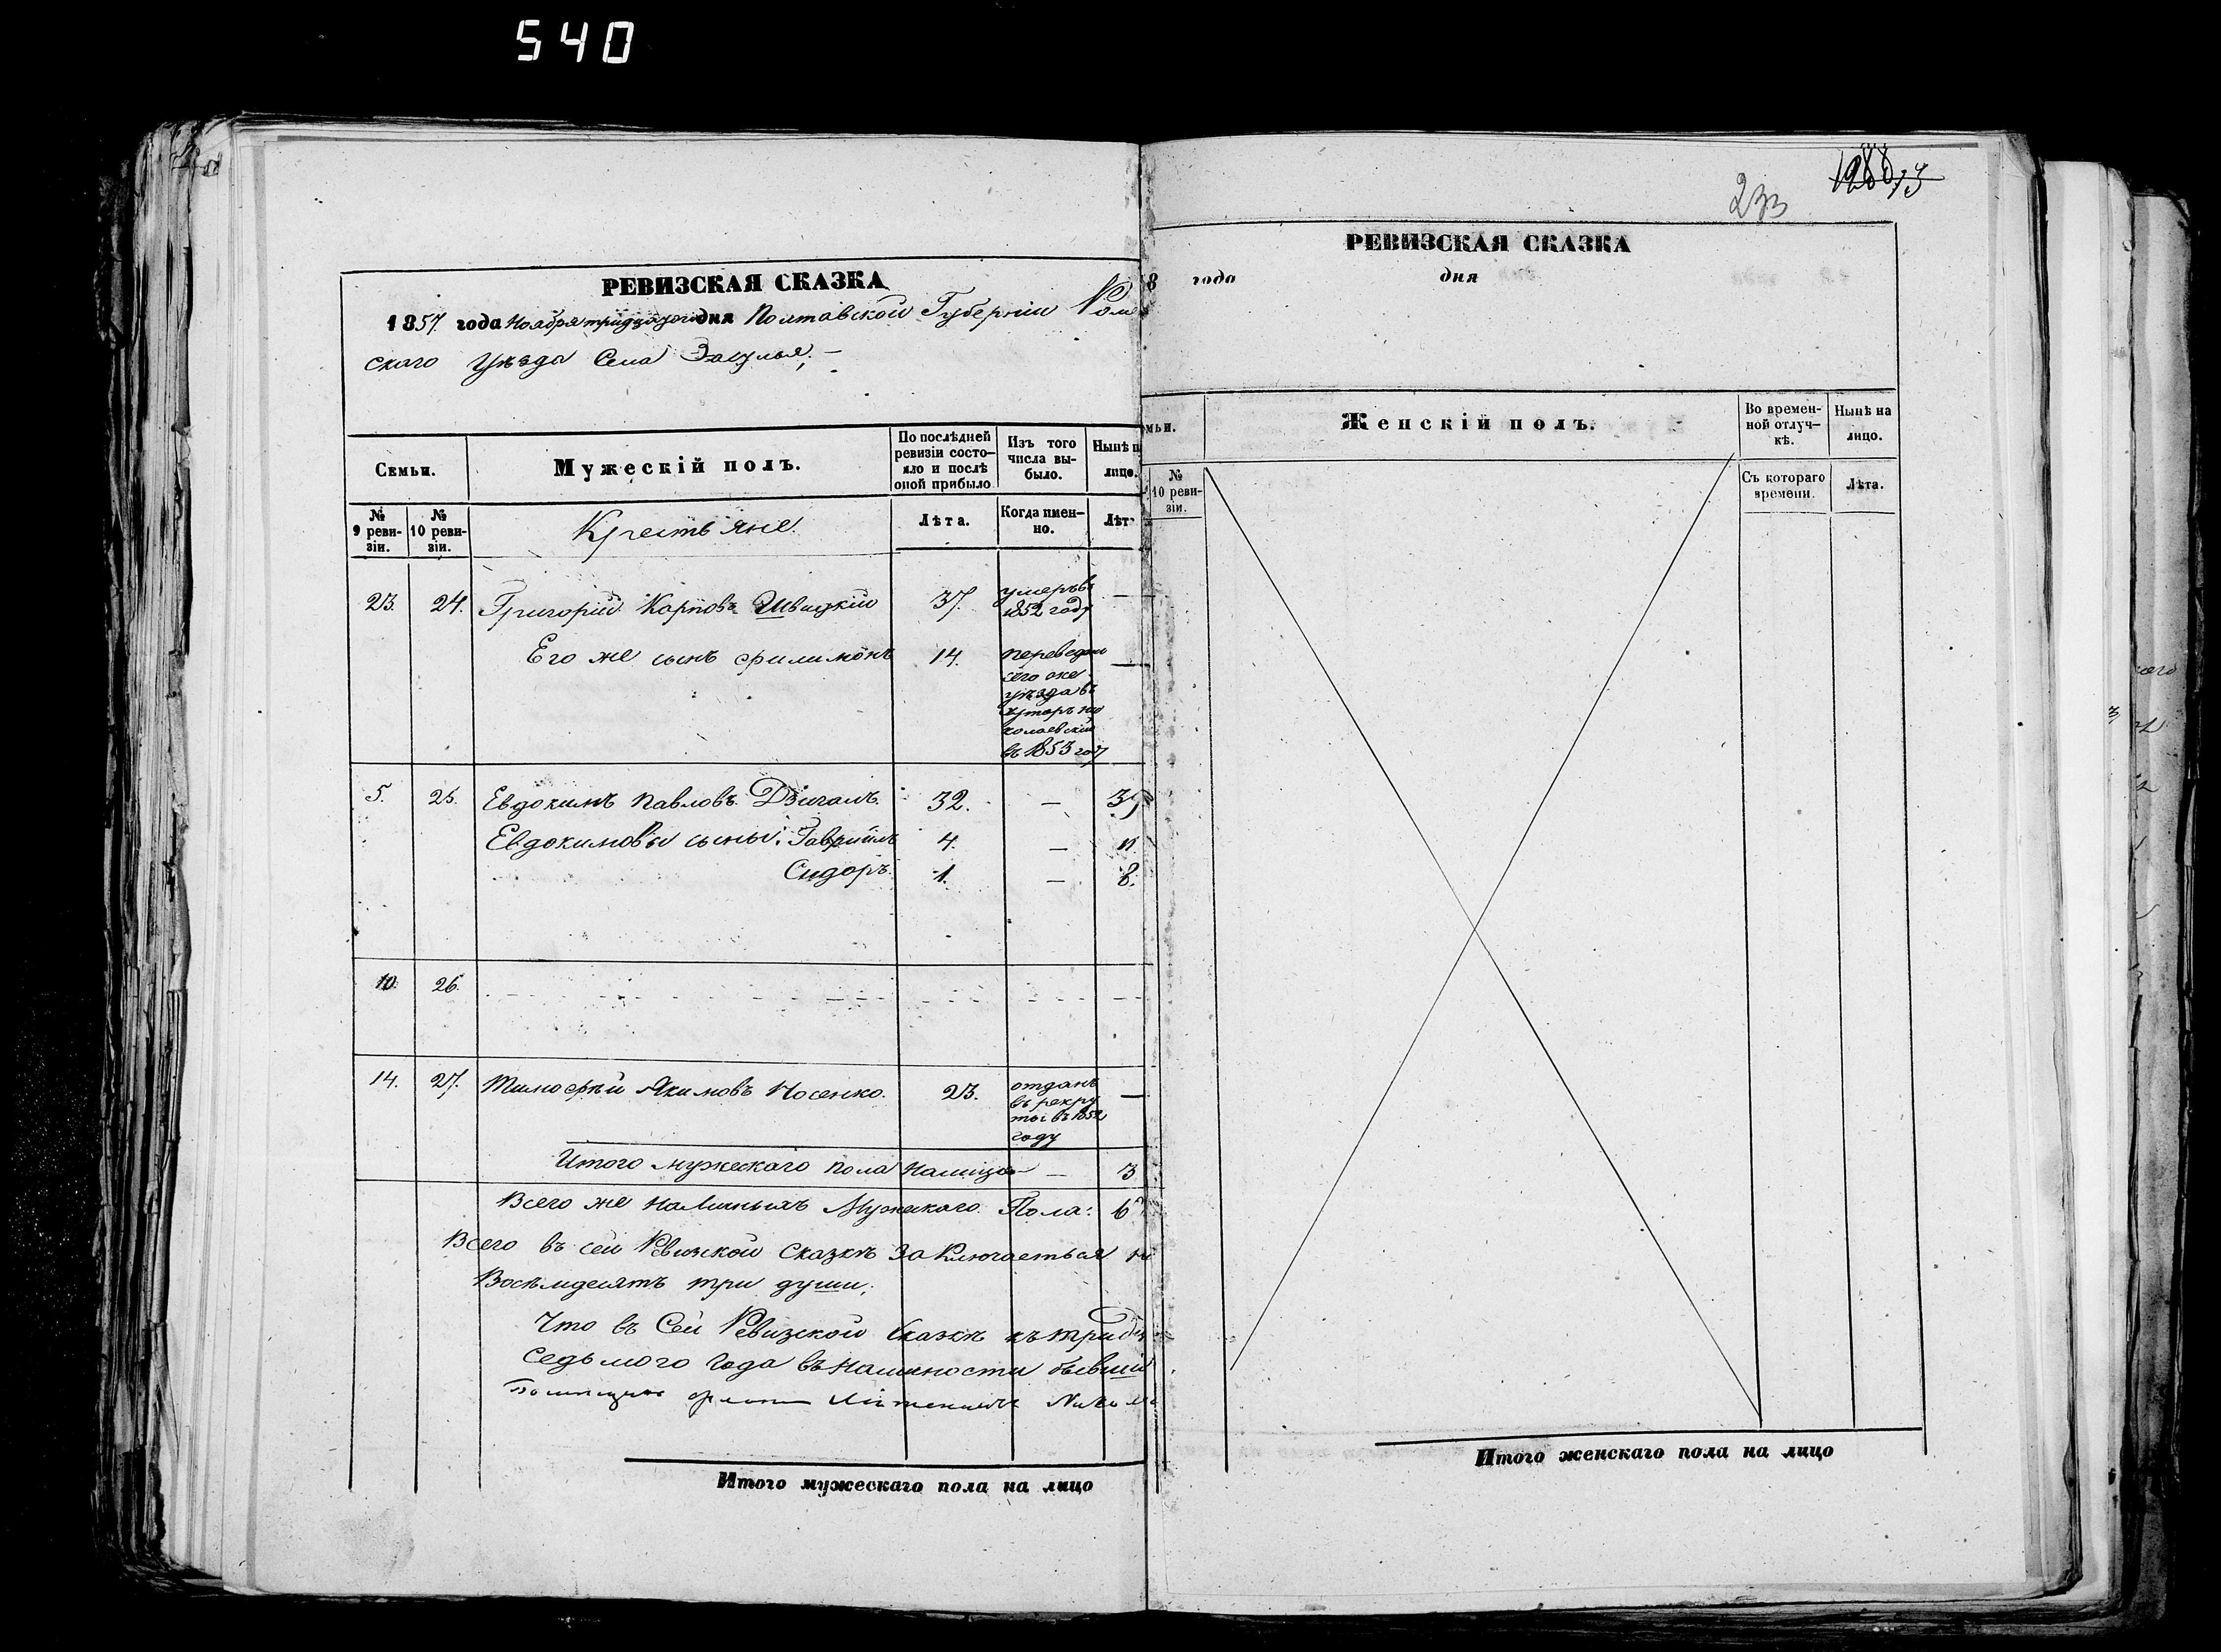 540
233
РЕВИЗСКАЯ СКАЗКА
1857 года Ноября тридцатого дня Полтавской Губерніи Роме
скаго Уѣзда Села Засулья;
Семьи.
Мужескій полъ.
По послѣдней
ревизіи состо-
яло и послѣ
оной прибыло
Изъ того
числа вы-
было.
Нынѣ н
лицо.
№
9 реви-
зіи.
№
10 реви-
зіи.
Крестьяне.
Лѣта.
Когда имен-
но.
Лѣт
23. 24. Григорій Карповъ Швидкій 37. умеръ въ —
1852 году
Его же сынъ Филимонъ 14. переведенъ —
сего же
уѣзда въ
хуторъ Ни
колаевскій
въ 1853 году
5. 25. Евдокимъ Павловъ Дзигаль 32. — 39
Евдокимовы сыны: Гавріилъ 4. — 11.
Сидоръ. 1. — 8.
10. 26.
14. 27. Тимофѣй Якимовъ Носенко. 23. отданъ —
въ рекру
ты въ 1852
году
Итого мужескаго пола налицо — 3
Всего же наличныхъ Мужескаго Пола: 6
Всего въ сей Ревизской Сказкѣ Заключаеться
Восѣмдесятъ три души;
Что въ Сей Ревизской Сказкѣ къ
Седьмого Года въ наличности бывшія
Итого мужескаго пола на лицо
РЕВИЗСКАЯ СКАЗКА
8 года дня
мьи.
№
10 реви-
зіи.
Женскій полъ.
Во времен-
ной отлуч-
кѣ.
Нынѣ на
лицо.
Съ котораго
времени.
Лѣта.
Итого женскаго пола на лицо